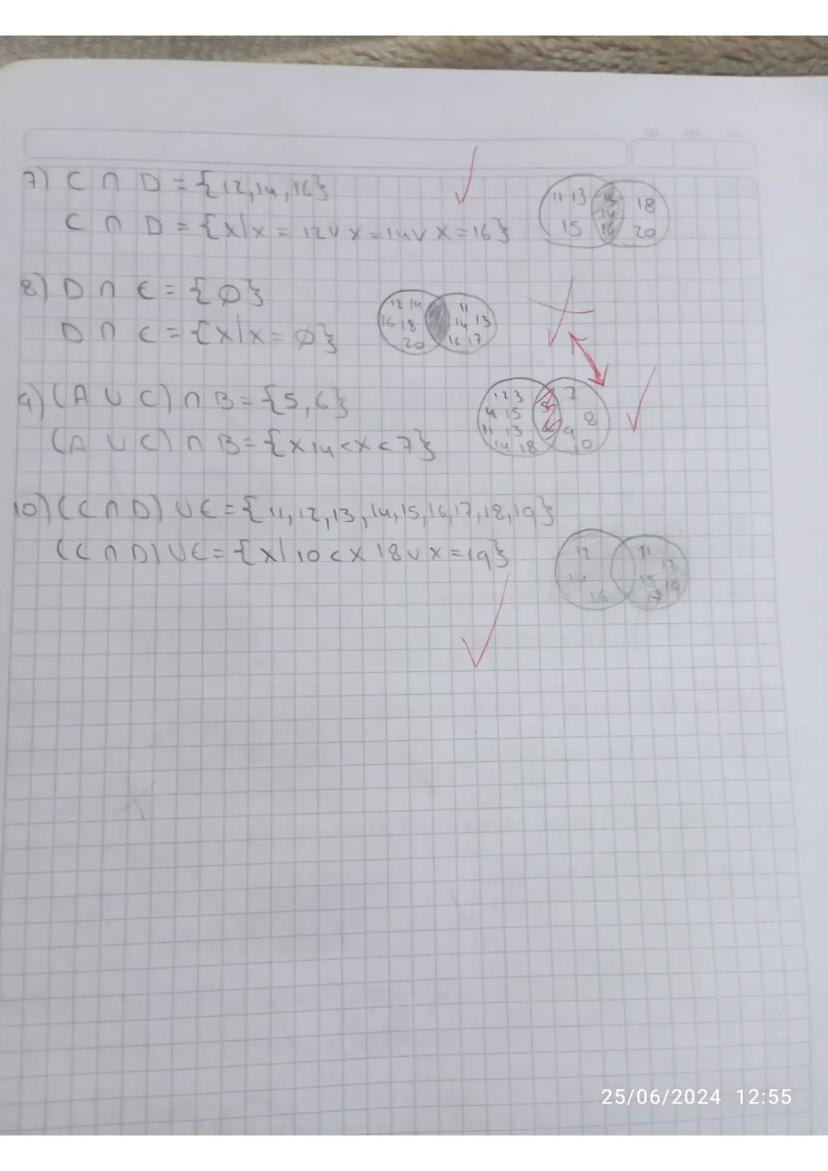 7) C ∩ D = {12,14,16}
C ∩ D = {x|x = 12 v x = 14 v x = 16}
11 13 15 12 14 16 18 20
8) D ∩ E = {Ø}
D ∩ E = {x|x = Ø}
12 14 16 18 20 11 14 13 16 17
9) (A ∪ C) ∩ B = {5,6}
(A ∪ C) ∩ B = {x|4<x<7}
1 2 3 4 15 11 13 14 18 5 6 7 8 9 10
10) (C ∩ D) ∪ E = {11,12,13,14,15,16,17,18,19}
(C ∩ D) ∪ E = {x|10<x 18 v x = 19}
12 14 16 11 13 15 19 17
25/06/2024 12:55